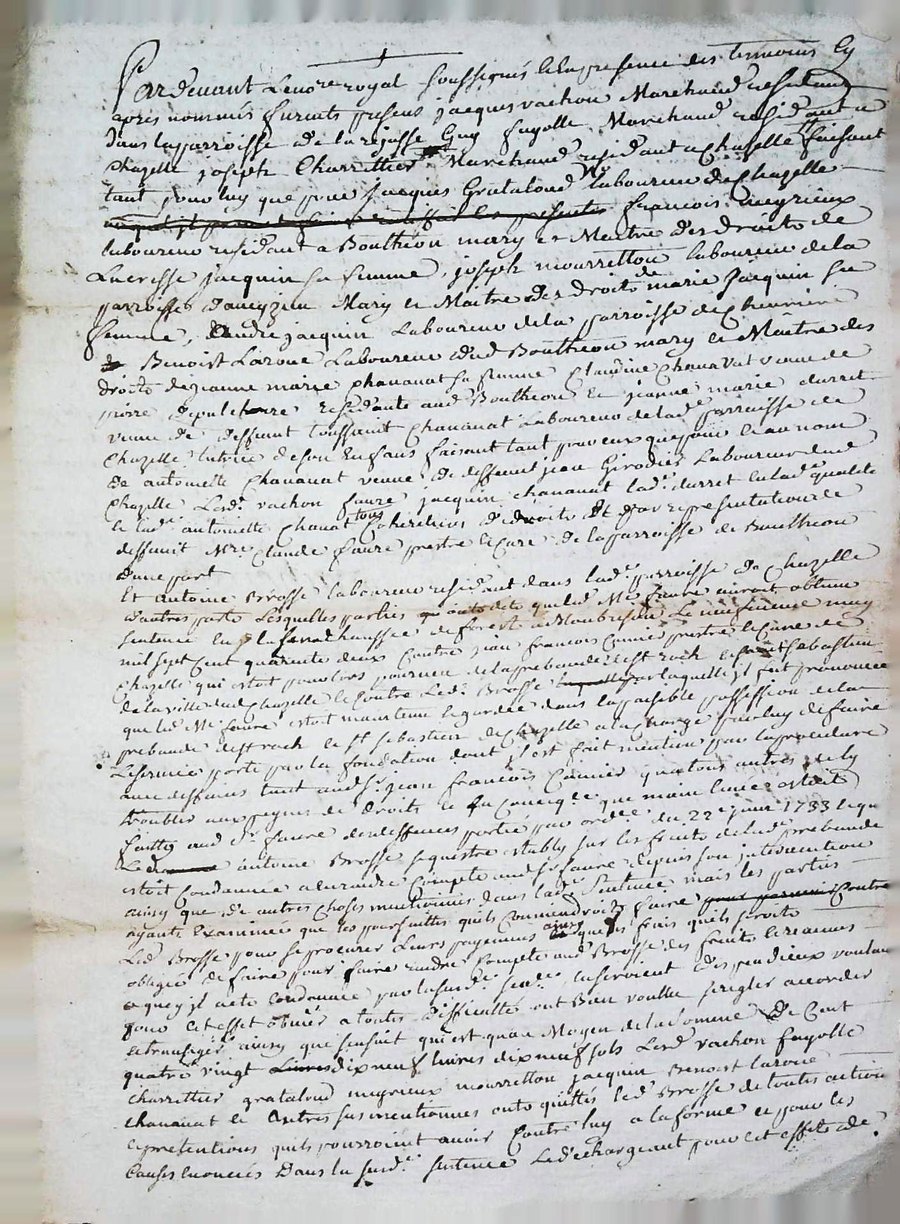 Pardevant Le no.re royal soussigné & En presence des temoins Cy
apres nommés furents presens jacques vachon Marchand residant
dans la parroisse de la rejasse Guy fayolle Marchand residant a
Chazelle joseph Charretier Marchand residant a Chazelle faisant
tant pour luy que pour Jacques Grataloud laboureur de Chazelle
françois meyrieux
laboureur residant a Bouthéon mary et Maitre des droits de
Lucresse jacquin sa femme, joseph mourretton laboureur de la
parroisse daveyzieu Mary et Maitre des droits de marie Jacquin sa
femme, André jacquin Laboureur de la parroisse de chevrieres
Benoist Laroue Laboureur dud Bouthéon mary et Maitre des
droits de jeanne marie chananat sa femme Claudine Chanavat veuve de
pierre residante aud Bouthéon Et jeanne marie durret
veuve de deffunt toussaint Chananat Laboureur de lad parroisse de
Chazelle tutrice de son Enfans faisant tant pour eux que pour et au nom
de antoinette Chananat veuve de deffunt jean Girodier Laboureur dud
Chazelle Lesd. vachon faure jacquin chananat lad. durret en lad. qualité
et lad.e antoinette Chanat tous Coheritiers de droits Et par representation de
deffunt M.re Claude faure prestre et Curé de la parroisse de Bouthéon
d'une part
Et antoine Brosse laboureur residant dans lad.e parroisse de Chazelle
d'autres parts Lesquelles parties ont dit que led. M.e faure auroit obtenu
sentence en la senechaussée de forest a Montbrison Le neufvieme may
mil sept Cent quarente deux Contre jean françois Cunier prestre et Curé de
Chazelle qui estoit pour lors pourveu de la prebande de st rock et saint sebastien
de la ville dud Chazelle et Contre Led. Brosse par laquelle il fut prononcé
que led. M.e faure estoit maintenu et gardée dans la paisible possession de la
prebande de st rock et st sebastien de Chazelle a la Charge par luy de faire
Le service porté par la fondation dont il est fait mention par la procedure
avec deffences tant aud. s.r jean françois Cunier qu'a tous autres de ly
troubler aux peynes de droits et en Conceqce que main levée estoit
faitte aud s.r faure des deffences portée par ordce du 22.e juin 1733 et que
Led. antoine Brosse sequestre estably sur les fruits de lad. prebande
estoit Condamnée a en rendre Compte aud s.r faure depuis son intervention
ainsy que de autres choses mentionnés dans lad.e sentence mais les parties
ayants Examinée que les poursuittes quils Conviendroits faire Contre
Led. Brosse pour se procurer Leurs payemens ainsy que les frais quils seroits
obligée de faire pour faire rendre Compte aud Brosse des fruits et revenus
a quoy il a eté Condamnée par la sud.e sen.ce, en seroient dispendieux voulant
pour Cet effet obvier a toutes difficultés ont Bien voullu se regler accorder
et transiger ainsy que sensuit qui est qu'au Moyen de la Somme de Cent
quatre vingt dix neuf livres dix neuf sols Lesd. vachon fayolle
charrettier grataloud meyrieux mourretton jacquin Benoist laroue
chananat et autres sus mentionnés onts quittés led. Brosse de toutes actions
et pretentions quils pourroint avoir Contre luy a la forme et pour les
Causes Enoncés Dans la susd.e sentence Le dechargeant pour cet effets de